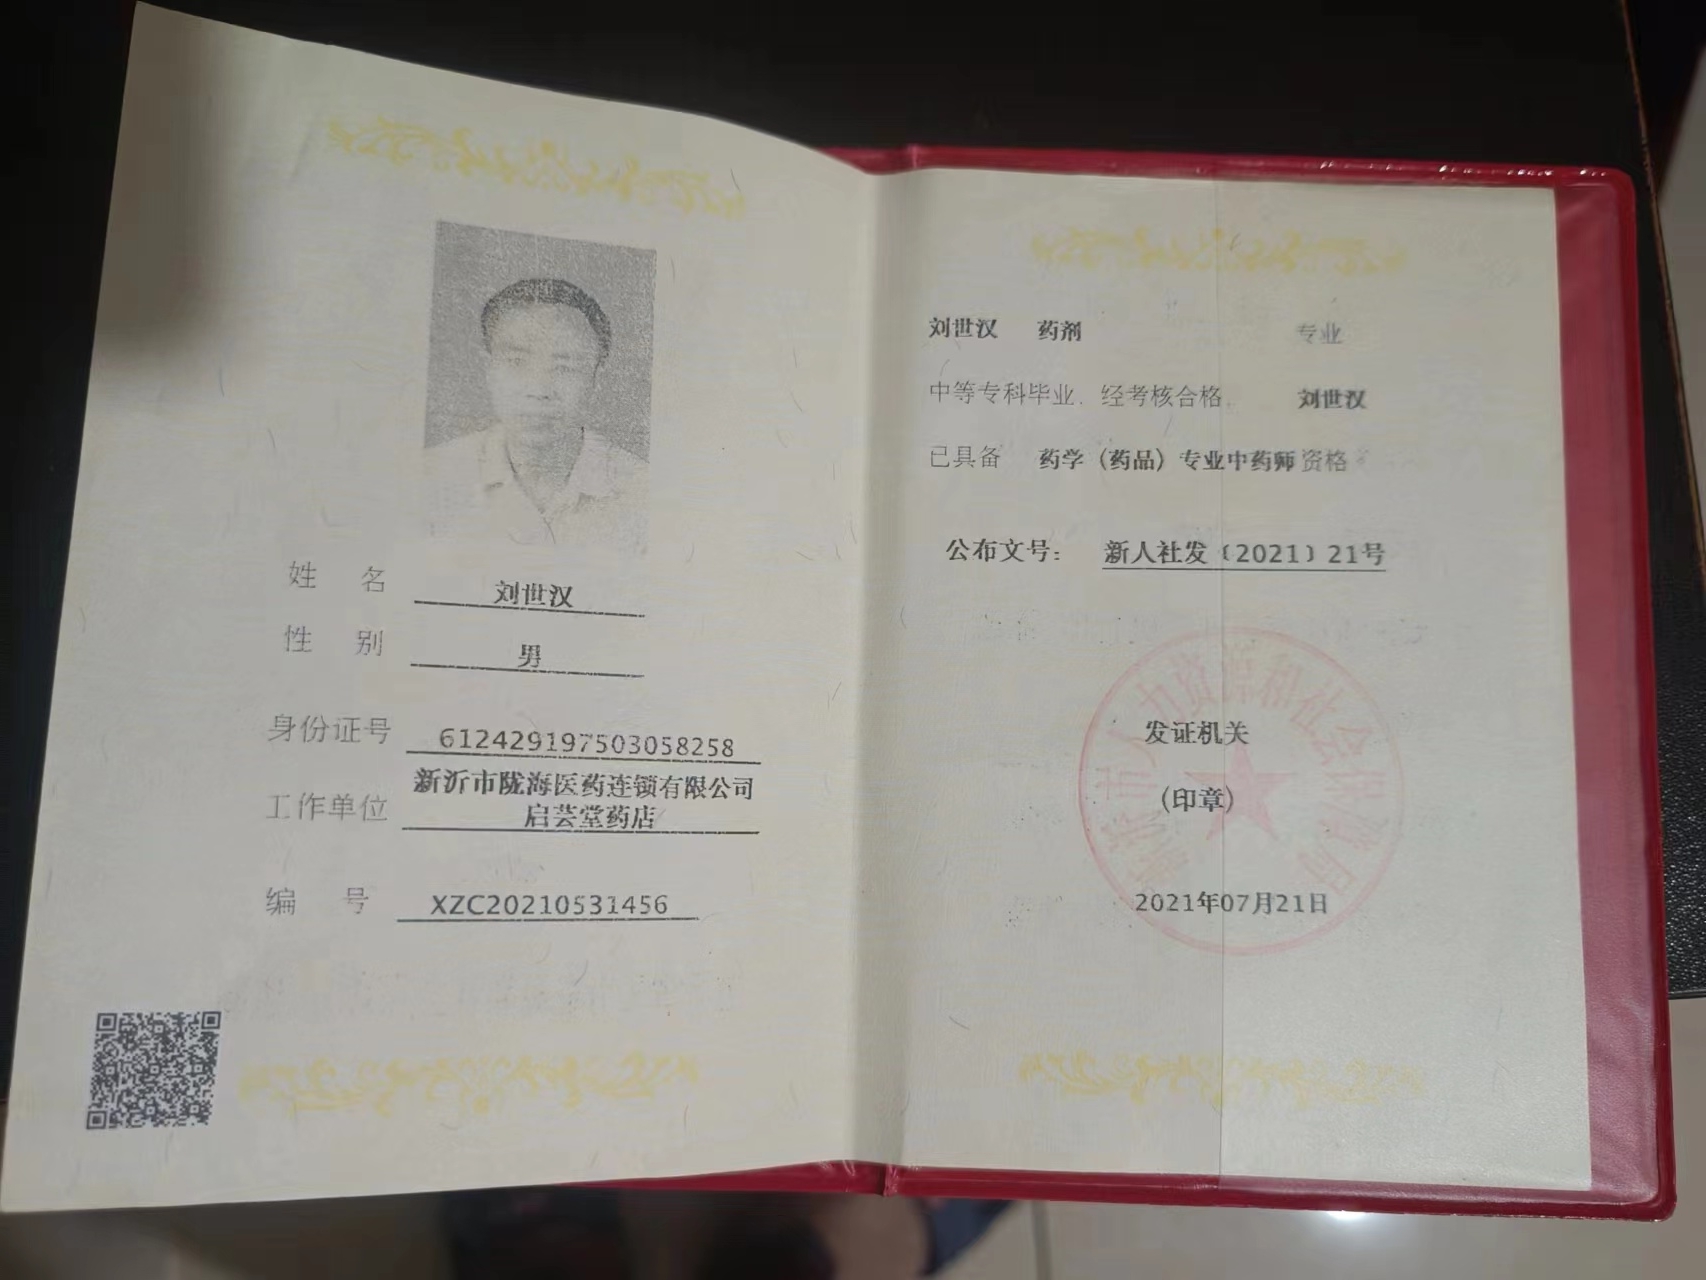 姓 名 刘世汉
性 别 男
身份证号 612429197503058258
工作单位 新沂市陇海医药连锁有限公司
启芸堂药店
编 号 XZC20210531456
刘世汉 药剂 专业
中等专科毕业，经考核合格， 刘世汉
已具备 药学（药品）专业中药师 资格
公布文号： 新人社发〔2021〕21号
新沂市人力资源和社会保障局
发证机关
（印章）
2021年07月21日